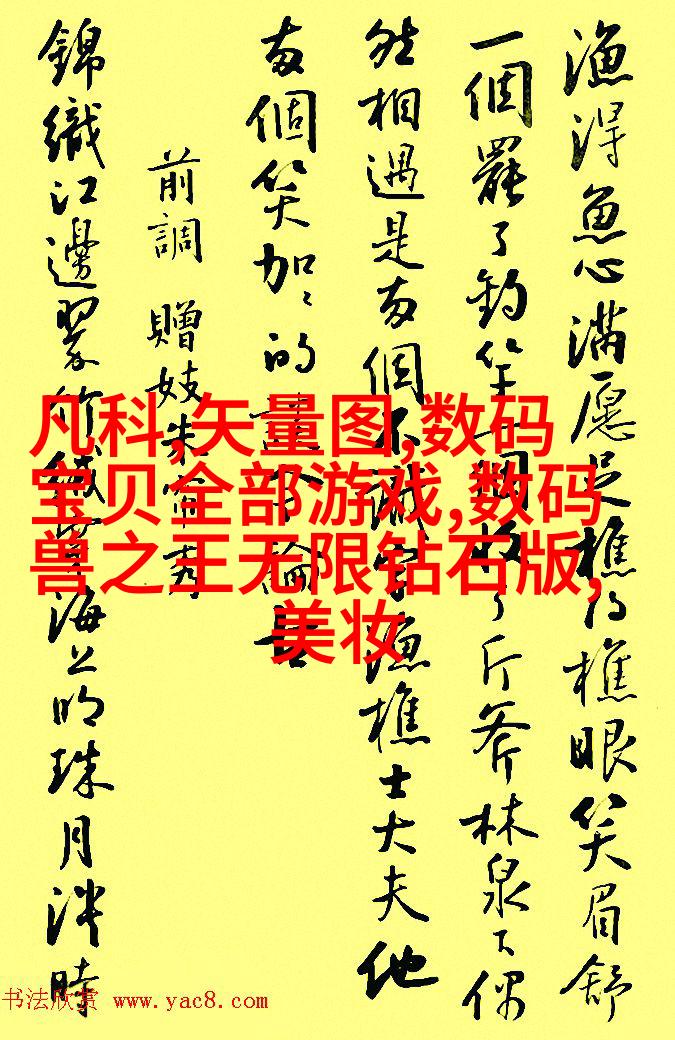 漁得魚心滿愿足樵得樵眼笑眉舒
一個罷了釣竿一個收了斤斧林泉下偶
然相遇是両個不識字漁樵士大夫他
両個笑加〻的今論古
前調 贈妓朱簾秀
錦織江邊翠竹絨穿海上明珠月淡時
凡科,矢量图,数码
宝贝全部游戏,数码
兽之王无限钻石版,
美妆
书法欣赏 www.yac8.com